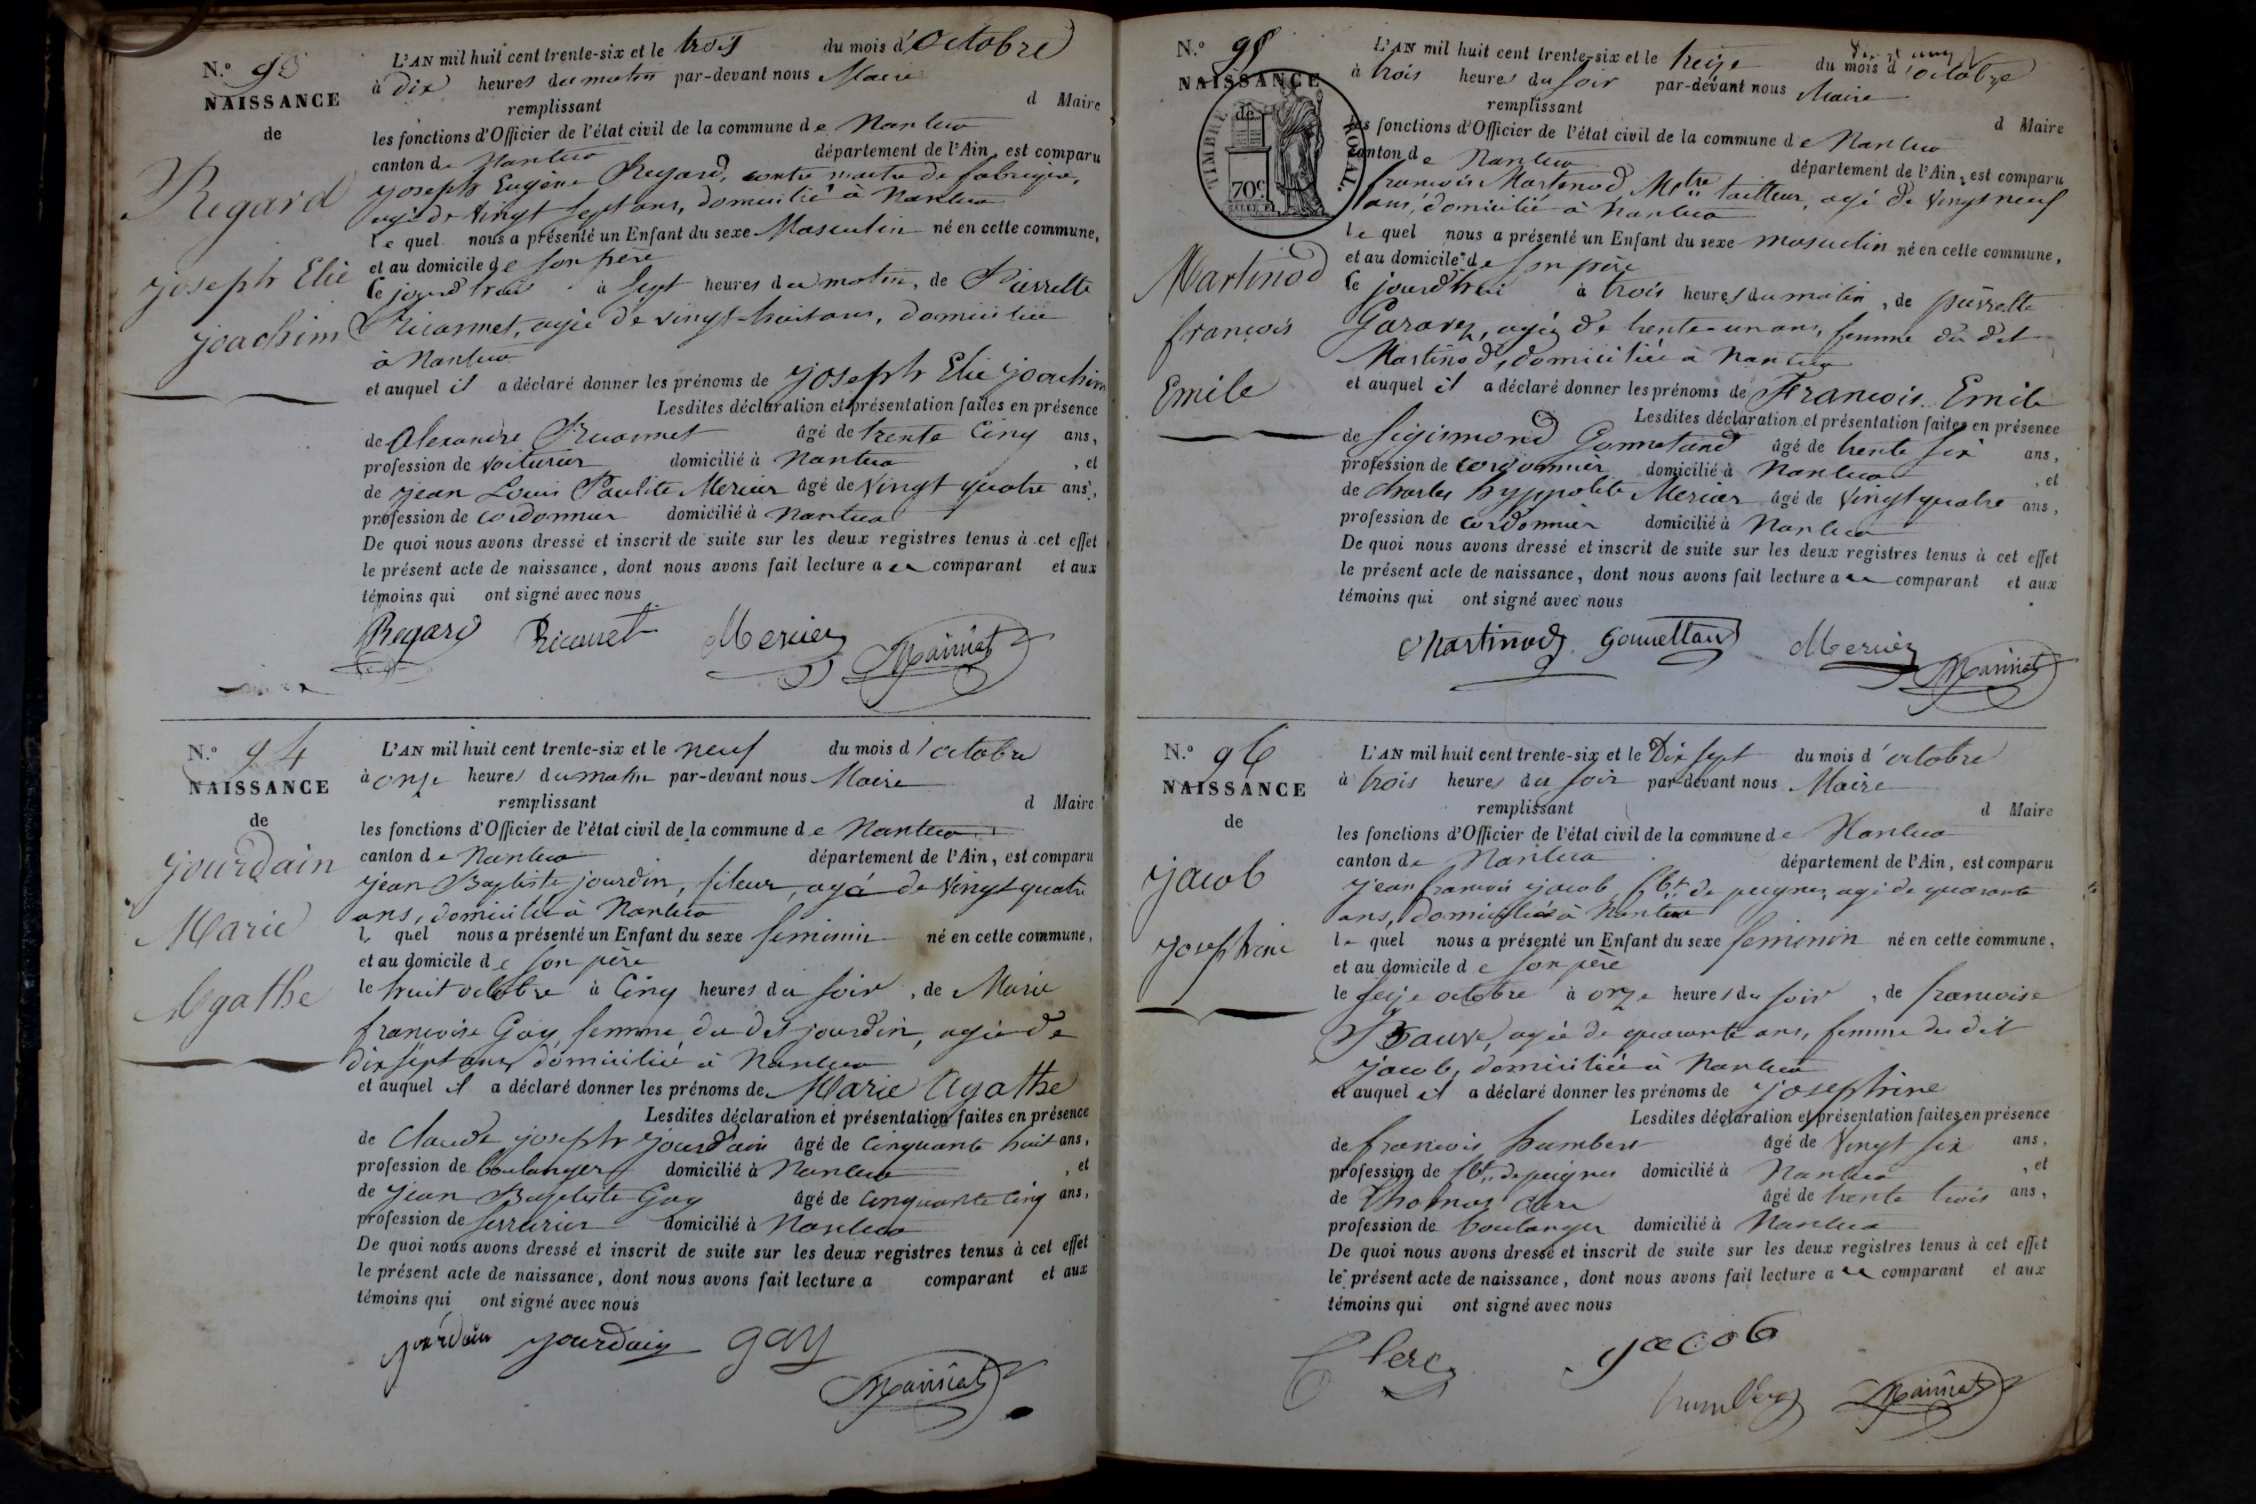 N.º 93
NAISSANCE
de
Regard
joseph Elie
joachim
L'AN mil huit cent trente-six et le trois du mois d'octobre
à dix heures du matin par-devant nous Maire
remplissant d Maire
les fonctions d'Officier de l'état civil de la commune de Nantua
canton de Nantua département de l'Ain, est comparu
joseph Eugène Regard, contre maitre de fabrique,
agé de vingt sept ans, domicilié à Nantua
le quel nous a présenté un Enfant du sexe Masculin né en cette commune,
et au domicile de son père
le jourd'hui à sept heures du matin, de Pierrette
Ricannet, agée de vingt-huit ans, domiciliée
à Nantua
et auquel il a déclaré donner les prénoms de joseph Elie joachim
Lesdites déclaration et présentation faites en présence
de alexandre Ricannet âgé de trente cinq ans,
profession de voiturier domicilié à Nantua, et
de jean Louis Mercier âgé de vingt quatre ans,
profession de cordonnier domicilié à Nantua
De quoi nous avons dressé et inscrit de suite sur les deux registres tenus à cet effet
le présent acte de naissance, dont nous avons fait lecture au comparant et aux
témoins qui ont signé avec nous
Regard Ricannet Mercier
N.º 94
NAISSANCE
de
jourdain
Marie
Agathe
L'AN mil huit cent trente-six et le neuf du mois d'octobre
à onze heures du matin par-devant nous Maire
remplissant d Maire
les fonctions d'Officier de l'état civil de la commune de Nantua
canton de Nantua département de l'Ain, est comparu
jean Baptiste jourdin, fileur, agé de vingt quatre
ans, domicilié à Nantua
le quel nous a présenté un Enfant du sexe feminin né en cette commune,
et au domicile de son père
le huit octobre à cinq heures du soir, de Marie
françoise Gay, femme du dit jourdin, agée de
dix sept ans domiciliée à Nantua
et auquel il a déclaré donner les prénoms de Marie Agathe
Lesdites déclaration et présentation faites en présence
de Claude joseph jourdain âgé de cinquante huit ans,
profession de boulanger domicilié à Nantua, et
de jean Baptiste Gay âgé de cinquante cinq ans,
profession de serrurier domicilié à Nantua
De quoi nous avons dressé et inscrit de suite sur les deux registres tenus à cet effet
le présent acte de naissance, dont nous avons fait lecture a comparant et aux
témoins qui ont signé avec nous
jourdain jourdain gay
N.º 95
NAISSANCE
de
TIMBRE ROYAL.
70c
Martinod
françois
Emile
L'AN mil huit cent trente-six et le treize du mois d'octobre
à trois heures du soir par-devant nous Maire
remplissant d Maire
les fonctions d'Officier de l'état civil de la commune de Nantua
canton de Nantua département de l'Ain, est comparu
françois Martinod Mtre tailleur, agé de vingt neuf
ans, domicilié à Nantua
le quel nous a présenté un Enfant du sexe masculin né en cette commune,
et au domicile de son père
le jourd'hui à trois heures du matin, de pierrette
agée de trente-un ans, femme du dit
Martinod, domiciliée à Nantua
et auquel il a déclaré donner les prénoms de François Emile
Lesdites déclaration et présentation faites en présence
de sigismond Gonnetand âgé de trente six ans,
profession de cordonnier domicilié à Nantua, et
de charles hyppolite Mercier âgé de vingt quatre ans,
profession de cordonnier domicilié à Nantua
De quoi nous avons dressé et inscrit de suite sur les deux registres tenus à cet effet
le présent acte de naissance, dont nous avons fait lecture au comparant et aux
témoins qui ont signé avec nous
Martinod Mercier
N.º 96
NAISSANCE
de
jacob
josephine
L'AN mil huit cent trente-six et le Dix sept du mois d'octobre
à trois heures du soir par-devant nous Maire
remplissant d Maire
les fonctions d'Officier de l'état civil de la commune de Nantua
canton de Nantua département de l'Ain, est comparu
jean françois jacob, fbt de peignes, agé de quarante
ans, domicilié à Nantua
le quel nous a présenté un Enfant du sexe feminin né en cette commune,
et au domicile de son père
le seize octobre à onze heures du soir, de françoise
agée de quarante ans, femme du dit
jacob, domiciliée à Nantua
et auquel il a déclaré donner les prénoms de josephine
Lesdites déclaration et présentation faites en présence
de françois humbert âgé de vingt six ans,
profession de fbt de peignes domicilié à Nantua, et
de Thomas clerc âgé de trente trois ans,
profession de boulanger domicilié à Nantua
De quoi nous avons dressé et inscrit de suite sur les deux registres tenus à cet effet
le présent acte de naissance, dont nous avons fait lecture au comparant et aux
témoins qui ont signé avec nous
Clerc jacob
humbert